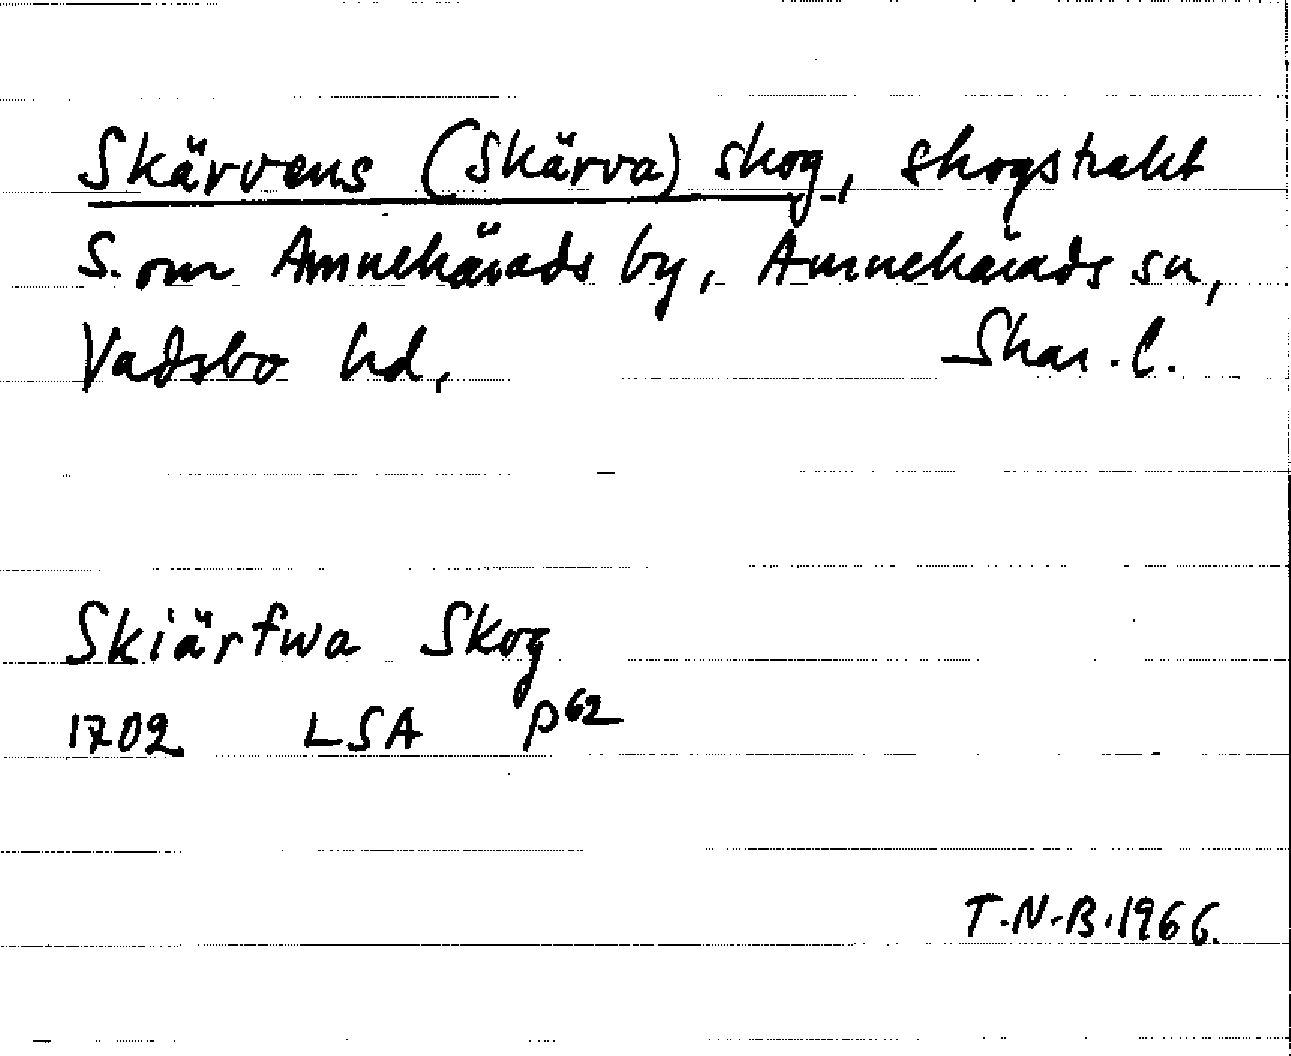 Skärvens (Skärva) skog, skogstrakt
S. om Amnehärads by, Amnehärads sn,
Vadsbo hd, Skar. l.
Skiärfwa Skog
1702 LSA P 62
T.N.B. 1966.